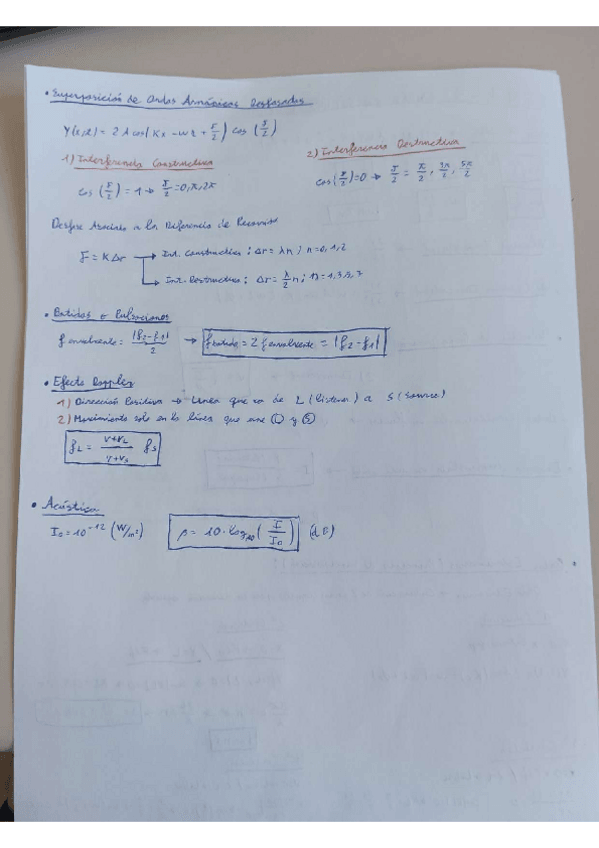 • Superposición de Ondas Armónicas Desfasadas
Y(x,t) = 2 A cos(Kx - wt + δ/2) cos (δ/2)
1) Interferencia Constructiva
cos (δ/2) = 1 → δ/2 = 0, π, 2π
2) Interferencia Destructiva
cos(δ/2) = 0 → δ/2 = π/2, 3π/2, 5π/2
Desfase Asociado a la Diferencia de Recorrido
δ = K Δr → Int. Constructiva : Δr = λn ; n = 0, 1, 2
→ Int. Destructiva : Δr = λ/2 n ; n = 1, 3, 5, 7
• Batidos o Pulsaciones
f envolvente = |f2 - f1| / 2 → f batido = 2 f envolvente = |f2 - f1|
• Efecto Doppler
1) Dirección Positiva → Línea que va de L (listener) a S (source)
2) Movimiento solo en la línea que une (L) y (S)
fL = (v + vL) / (v + vs) fs
• Acústica
I0 = 10^-12 (W/m²) β = 10 · log10 (I / I0) (dB)